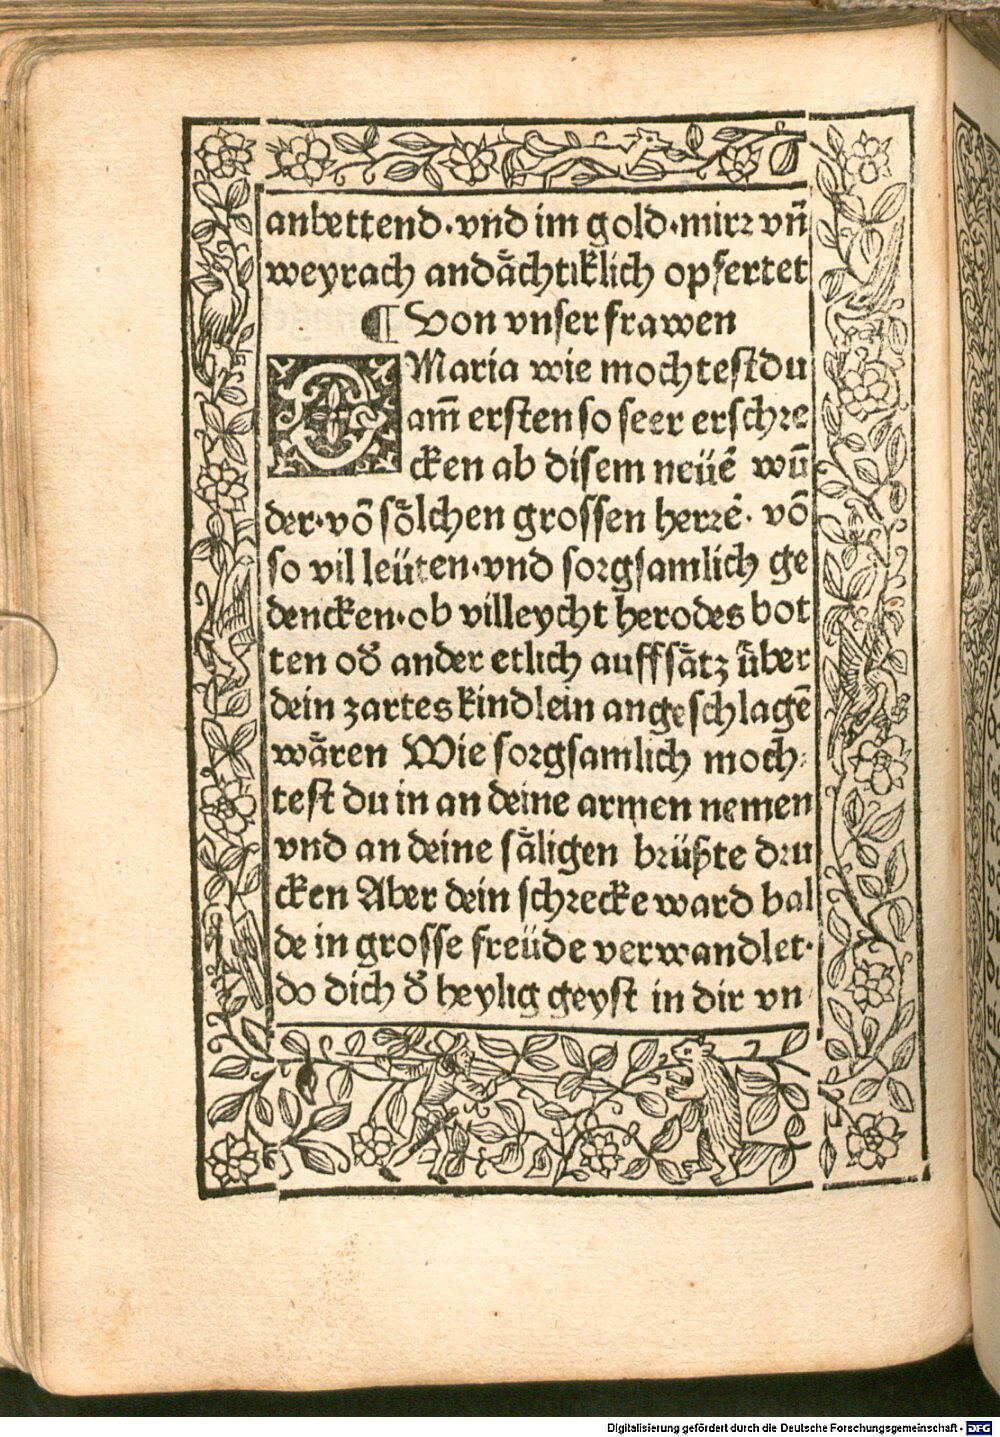 anbettend·vnd im gold·mirꝛ vn̄
weyrach andaͤchtiklich opfertet
¶ Von vnser frawen
O Maria wie mochtest du
am̄ ersten so seer erschꝛe
cken ab disem neüē wū
der·vō soͤlchen grossen herꝛē· vō
so vil leüten·vnd soꝛgsamlich ge
dencken·ob villeycht herodes bot
ten od̕ ander etlich auffsaͤtz uͤber
dein zartes kindlein angeschlagē
waͤren Wie soꝛgsamlich moch⸗
test du in an deine armen nemen
vnd an deine saͤligen bꝛüßte dꝛu
cken Aber dein schꝛecke ward bal
de in grosse freüde verwandlet·
do dich d̕ heylig geyst in dir vn
Digitalisierung gefördert durch die Deutsche Forschungsgemeinschaft - DFG